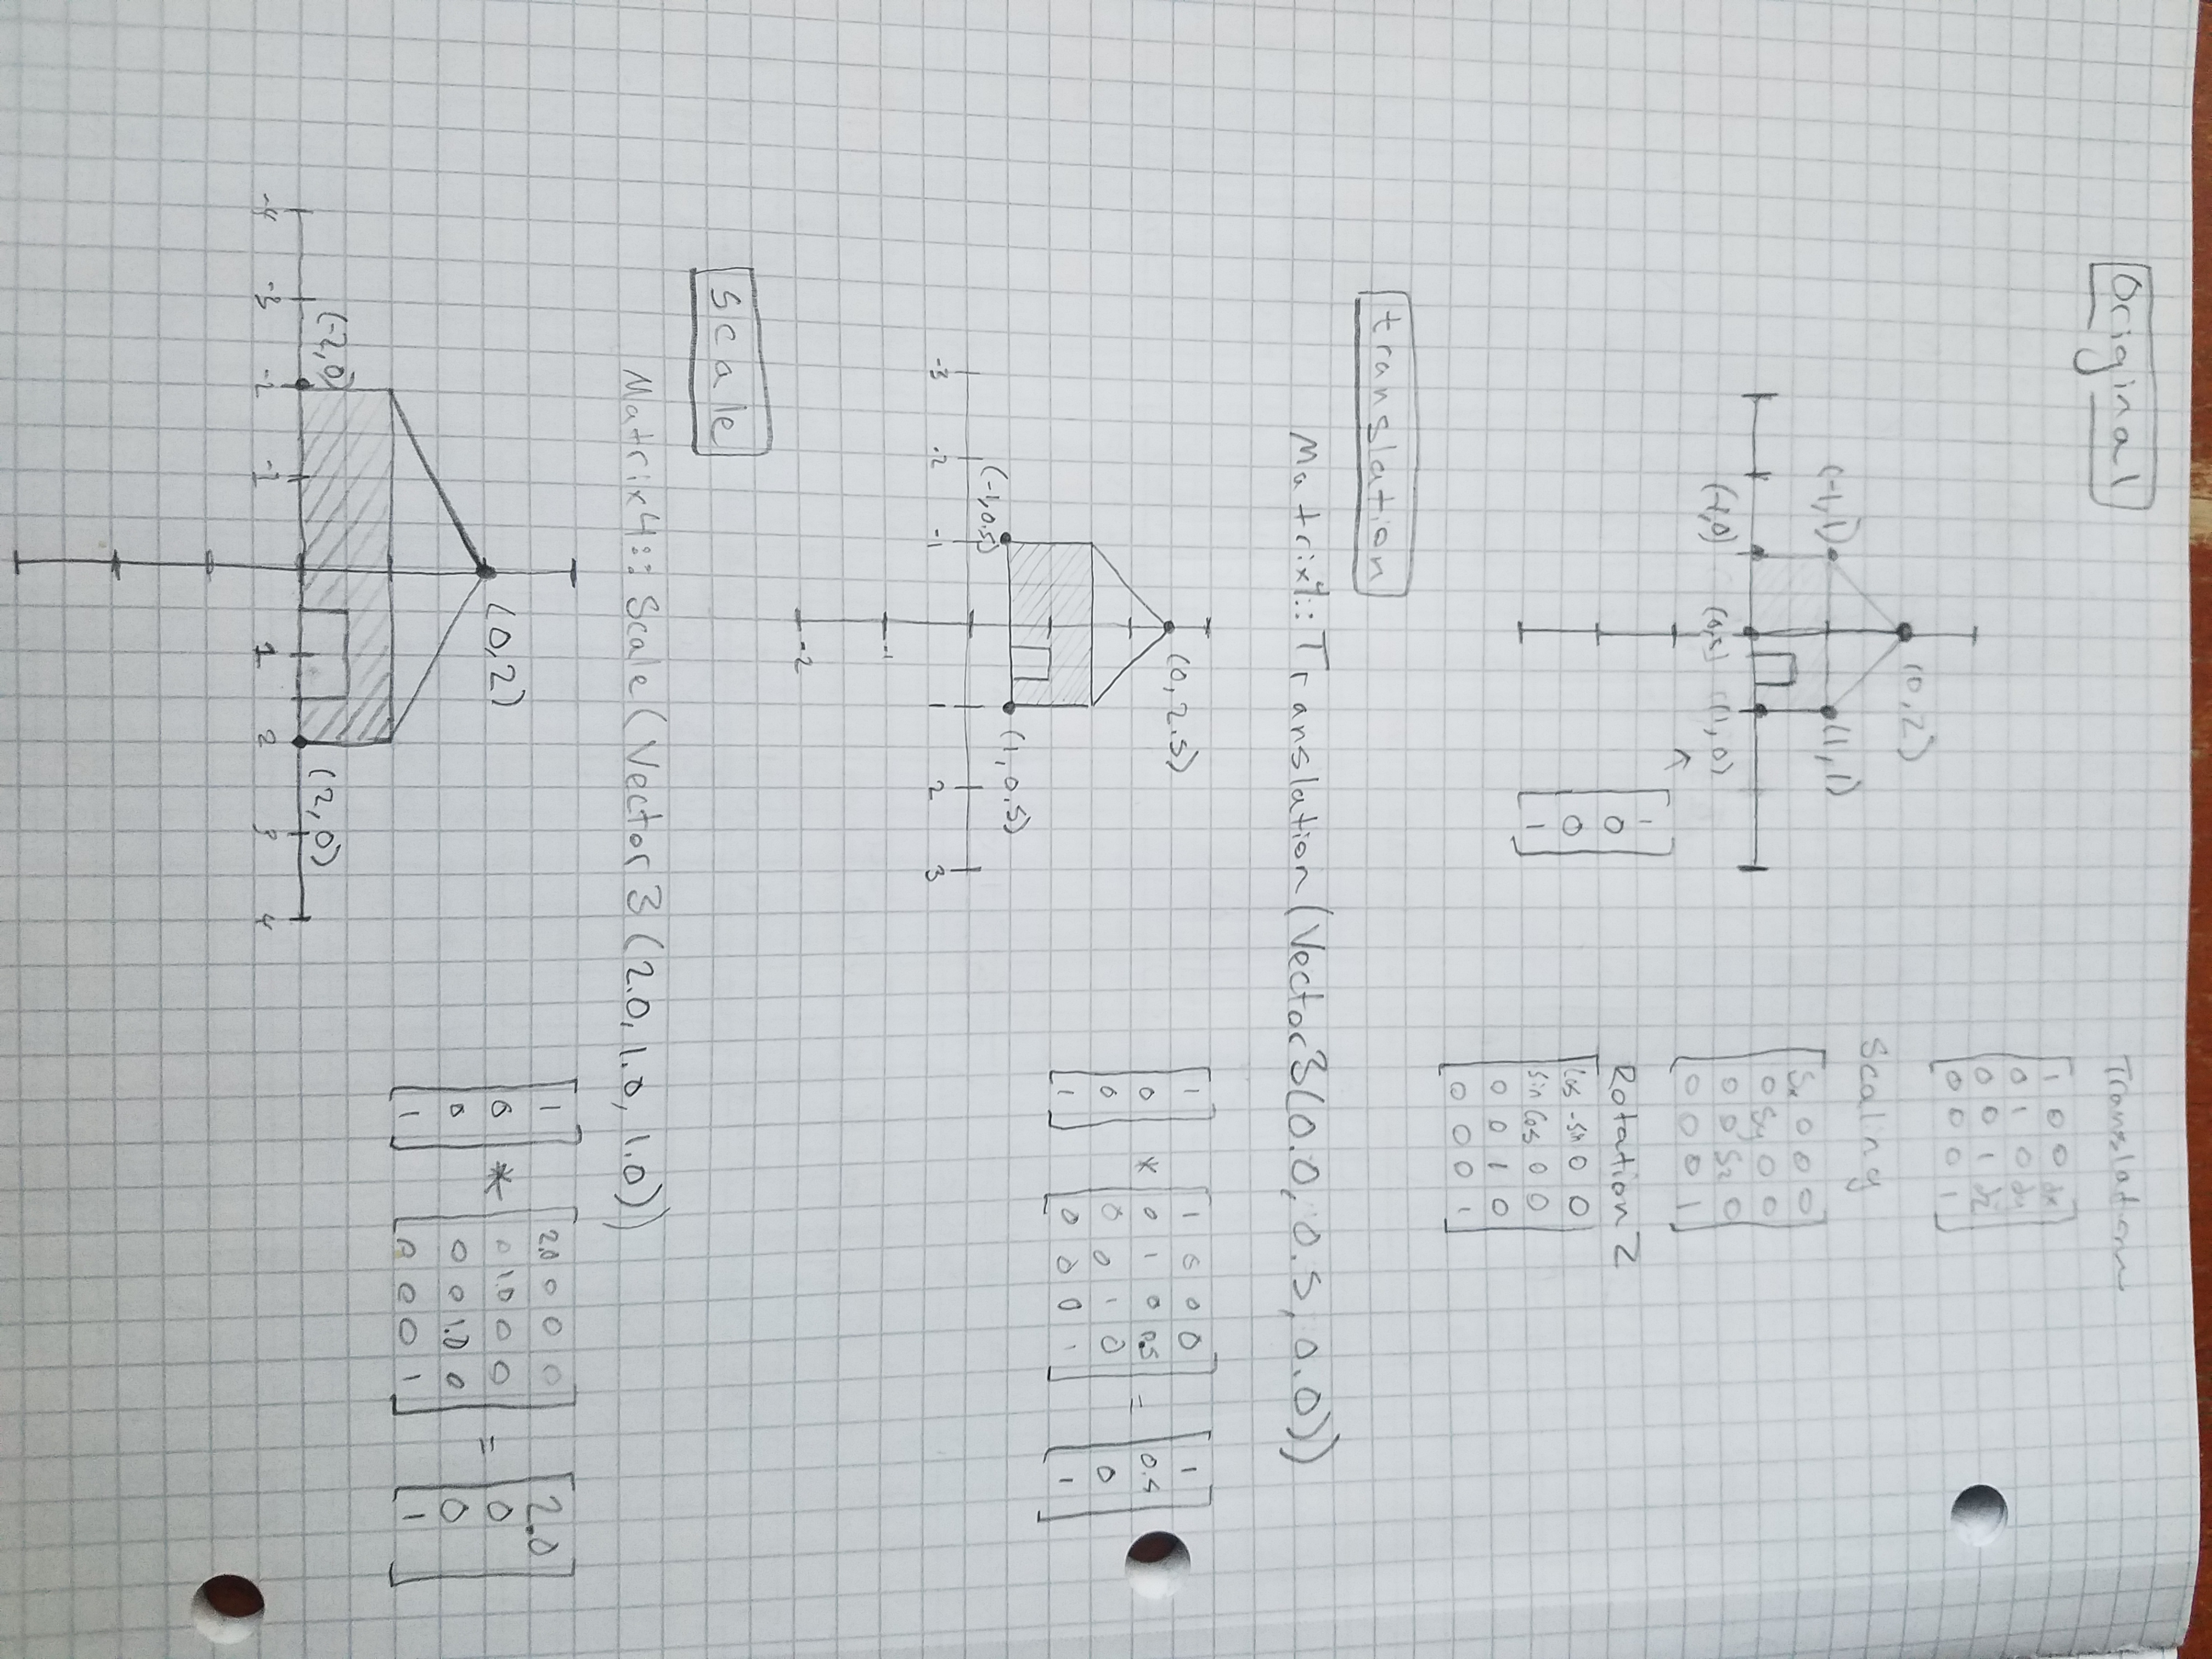 Original
(-1,1)
(0,2)
(1,1)
(-1,0)
(1,0)
1
0
0
1
Translation
1 0 0 dx
0 1 0 dy
0 0 1 dz
0 0 0 1
Scaling
Sx 0 0 0
0 Sy 0 0
0 0 Sz 0
0 0 0 1
Rotation Z
Cos -Sin 0 0
Sin Cos 0 0
0 0 1 0
0 0 0 1
translation
Matrix4::Translation(Vector3(0.0, 0.5, 0.0))
(0, 2.5)
(-1,0.5)
(1, 0.5)
-3 -2 -1 1 2 3
-1
-2
1
0
0
1
*
1 0 0 0
0 1 0 0.5
0 0 1 0
0 0 0 1
=
1
0.5
0
1
Scale
Matrix4::Scale(Vector3(2.0, 1.0, 1.0))
(0,2)
(-2,0)
(2,0)
-4 -3 -2 -1 1 2 3 4
1
0
0
1
*
2.0 0 0 0
0 1.0 0 0
0 0 1.0 0
0 0 0 1
=
2.0
0
0
1